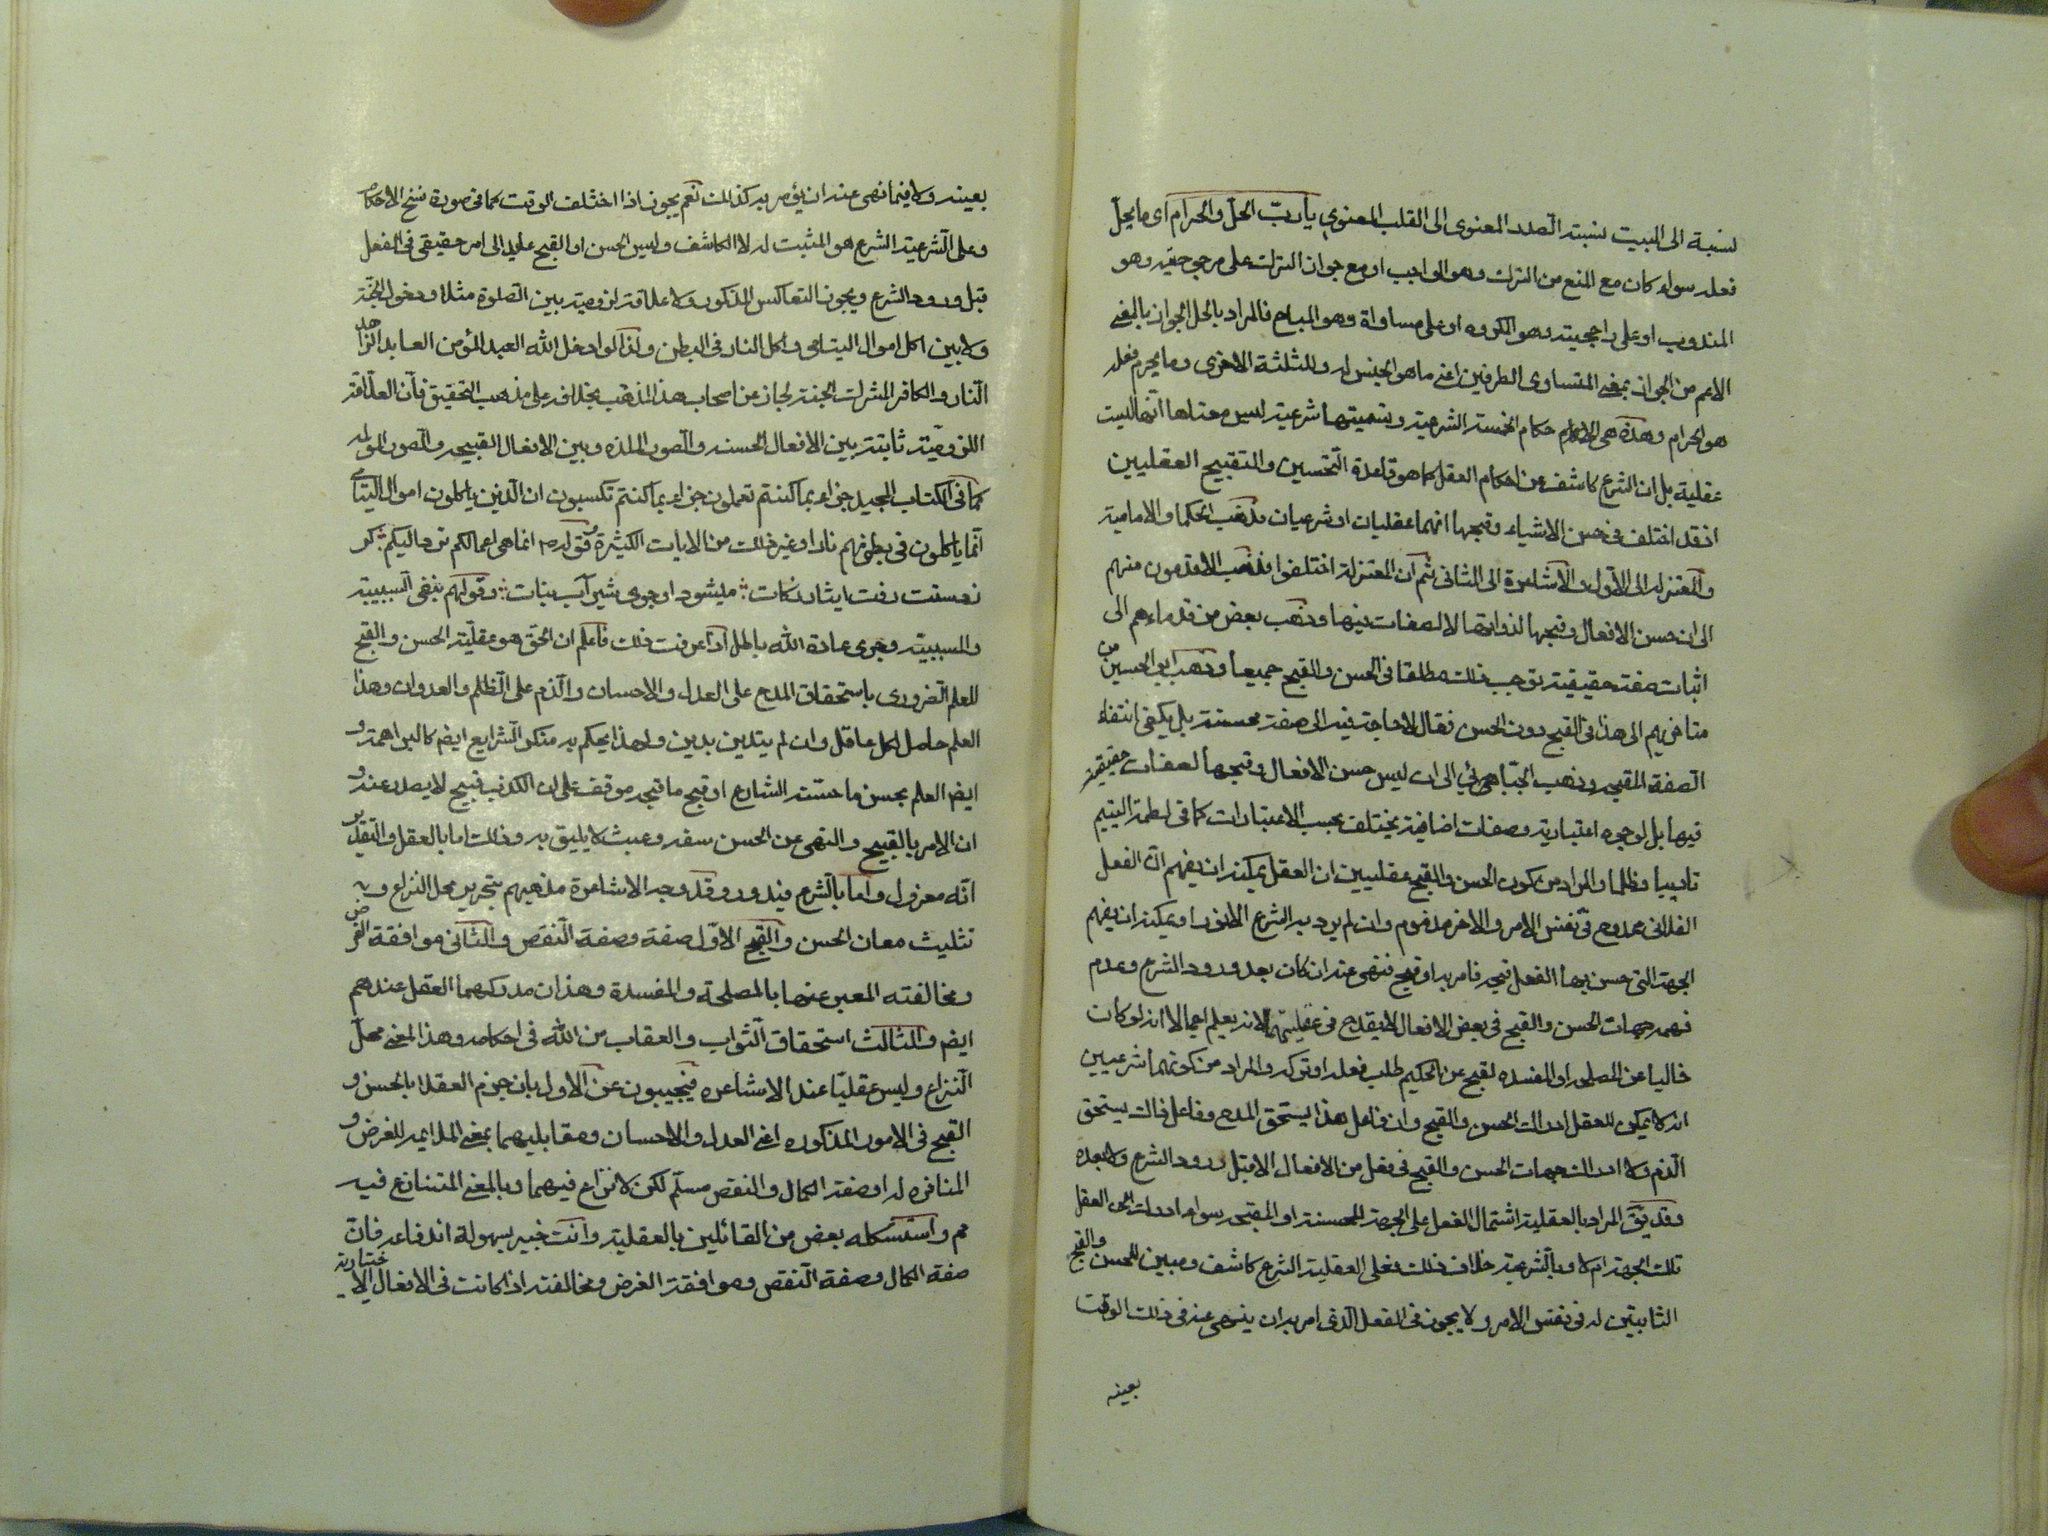 نسبة الى البيت نسبته الصدر المعنوى الى القلب المعنوي يا ربّ الحلّ والحرام اى ما يحلّ
فعله سواء كان مع المنع من الترك وهو الواجب او مع جواز الترك على مرجوحيته وهو
المندوب او على راجحيته وهو المكروه او على مساواة وهو المباح فالمراد بالحل الجواز بالمعنى
الاعم من الجواز بمعنى المتساوى الطرفين اعنى ما هو الجنس له وللثلثة الاخرى وما يحرم فعله
هو الحرام وهذه هى الاحكام الخمسة الشرعية وتسميتها شرعية ليس معناها انها ليست
عقلية بل ان الشرع كاشف عن احكام العقل كما هو قاعدة التحسين والتقبيح العقليين
اذ قد اختلف فى حسن الاشياء وقبحها انهما عقليان او شرعيان فذهب الحكما والامامية
والمعتزله الى الاول والاشاعرة الى الثانى ثم ان المعتزلة اختلفوا فذهب الاقدمون منهم
الى ان حسن الافعال وقبحها لذواتها لا لصفات فيها وذهب بعض من قدماءهم الى
اثبات صفة حقيقية توجب ذلك مطلقا فى الحسن والقبح جميعا وذهب ابى الحسين من
متاخريهم الى هذا فى القبح دون الحسن فقال لا حاجة فيه الى صفة محسنة بل يكفى انتفاء
الصفة المقبحه وذهب الجبّاهىئي الى ان ليس حسن الافعال وقبحها لصفات حقيقية
فيها بل لوجوه اعتبارية وصفات اضافية يختلف بحسب الاعتبارات كما فى لطمة اليتيم
تاديبا وظلما والمراد من كون الحسن والقبح عقليين ان العقل يمكنه ان يفهم ان الفعل
الفلانى ممدوح فى نفس الامر والاخر مذموم وان لم يرد به الشرع الانور او يمكنه ان يفهم
الجهة التى حسن بها الفعل فامر به او قبح فنهى عنه ان كان بعد ورود الشرع وعدم
فهمه جهات الحسن والقبح فى بعض الافعال لا يقدح فى عقليتهما لانه يعلم اجمالا انه لو كان
خاليا عن المصلحه او المفسده لقبح عن الحكيم طلب فعله او تركه والمراد من كونهما شرعيين
انه لا يمكن للعقل ادراك الحسن والقبح وان فاعل هذا يستحق المدح وفاعل ذاك يستحق
الذم ولا ادراك جهات الحسن والقبح فى فعل من الافعال لا قبل ورود الشرع ولا بعده
وقد يقَ المراد بالعقلية اشتمال الفعل على الجهة المحسنة او المقبحه سواء ادرك العقل
تلك الجهة ام لا وبالشرعية خلاف ذلك فعلى العقلية الشرع كاشف ومبين للحسن والقبح
الثابتين له فى نفس الامر ولا يجوز فى الفعل الذى امر به ان ينهى عنه فى ذلك الوقت
بعينه
بعينه ولا فيما نهى عنه ان يؤمر به كذلك نعم يجوز اذا اختلف الوقت كما فى صورة نسخ الاحكام
وعلى الشرعية الشرع هو المثبت له لا الكاشف وليس الحسن او القبح عايدا الى امر حقيقى فى الفعل
قبل ورود الشرع ويجوز التعاكس المذكور ولا علاقة لزومية بين الصلوة مثلا ودخول الجنة
ولا بين اكل اموال اليتامى واكل النار فى البطن ولذا لو ادخل الله العبد المؤمن العابد الزاهد
النار والكافر المشرك الجنة لجاز عن اصحاب هذا المذهب بخلافه على مذهب التحقيق فان العلاقة
اللزوميّة ثابتة بين الافعال الحسنه والصور الملذه وبين الافعال القبيحه والصور المولمه
كما فى الكتاب المجيد جزاء بما كنتم تعملون جزاء بما كنتم تكسبون ان الذين ياكلون اموال اليتامى
انما ياكلون فى بطونهم نارا وغير ذلك من الايات الكثيرة وفى قوله انما هى اعمالكم ترد اليكم كر
ز دستت رفت ايثار زكات ميشود او جوى شير آب بنات وقولهم بنفى السببية
والمسببية وجرى عادة الله باطل اذا عرفت ذلك فاعلم ان الحق هو عقلية الحسن والقبح
للعلم الضرورى باستحقاق المدح على العدل والاحسان والذم على الظلم والعدوان وهذا
العلم حاصل لكل عاقل وان لم يتدين بدين ولهذا يحكم به منكر الشرايع ايضم كالبراهمة و
ايضم العلم بحسن ما حسنه الشارع او قبح ما قبحه موقوف على ان الكذب قبيح لا يصدر عنه و
ان الامر بالقبيح والنهى عن الحسن سفه وعبث لا يليق به وذلك اما بالعقل والتقدير
انّه معزول واما بالشرع فيدور وقد وجه الاشاعرة مذهبهم بتحرير محل النزاع و
تثليث معان الحسن والقبح الاوّل صفة وصفة النقص والثانى موافقة الغرض
ومخالفته المعبر عنها بالمصلحة والمفسدة وهذان مدركهما العقل عندهم
ايضم والثالث استحقاق الثواب والعقاب من الله فى احكامه وهذا المعنى محلّ
النزاع وليس عقليّا عند الاشاعره فيجيبون عن الاول بان جزم العقلا بالحسن و
القبح فى الامور المذكوره اعنى العدل والاحسان ومقابليهما بمعنى الملايمه للغرض و
المنافره له او صفة الكمال والنقص مسلّم لكن لا نزاع فيهما وبالمعنى المتنازع فيه
مم واستشكله بعض من القائلين بالعقلية وانت خبير بسهولة اندفاعه فان
صفة الكمال وصفة النقص وموافقة الغرض ومخالفته اذا كانت فى الافعال الاختيارية